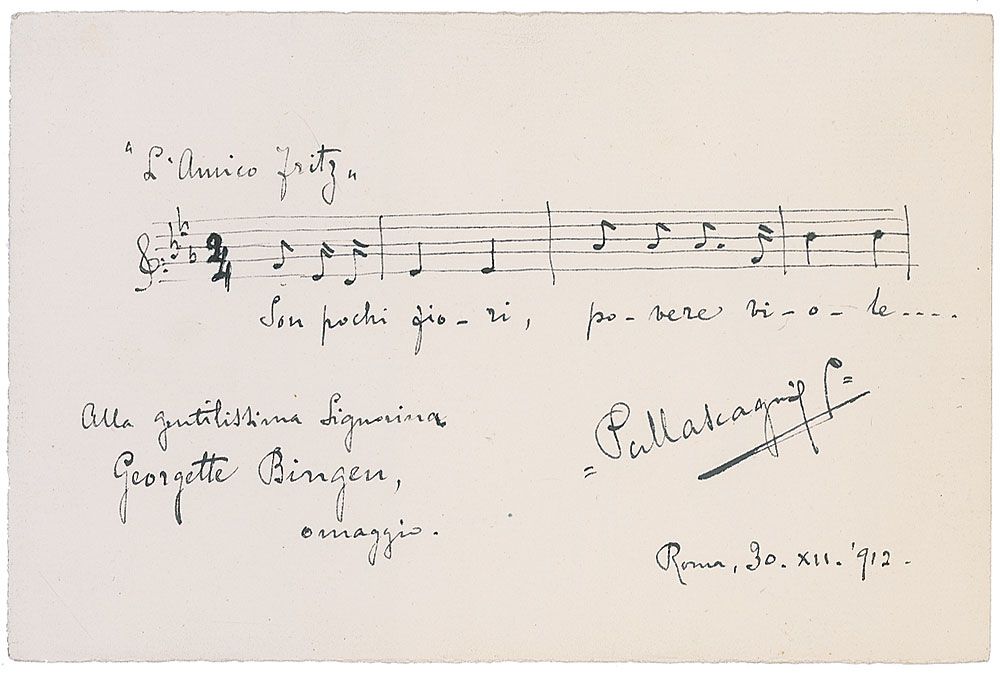 "L'Amico Fritz"
2/4
Son pochi fio-ri, po-vere vi-o-le....
Alla gentilissima Signorina
Georgette Bingen,
omaggio.
=PMascagni=
Roma, 30. XII. '912.